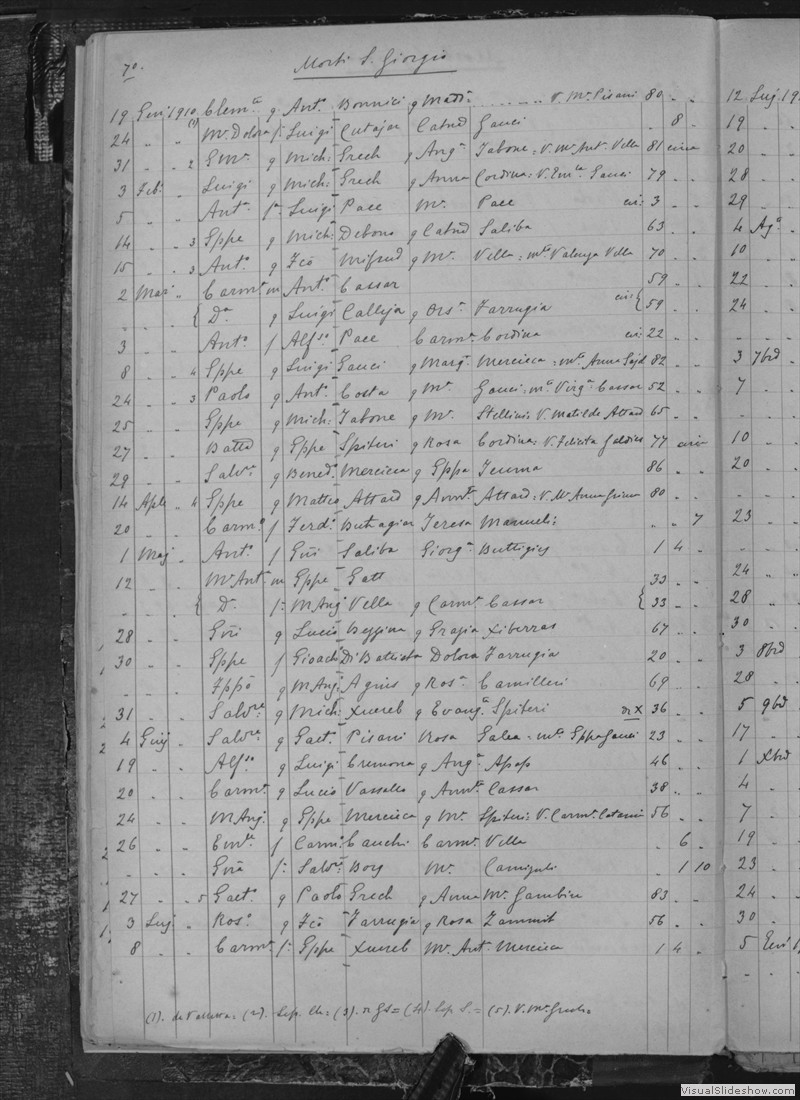 70.
Morti S. Giorgio
19 Gen. 1910 Clem.ta q Ant.o Bonnici q Madd.a V. M.a Pisani 80 . .
24 . . (1) M.a Dolora f.a Luigi Cutajar Catnd Gauci . 8 .
31 . . 2 Em.a q Mich: Grech q Ang.a Tabone = V. M.o Ant. Vella 81 circa
3 Feb. . Luigi q Mich: Grech q Anna Cordina = V. Em.la Gauci 79 . .
5 . . Ant.a f.a Luigi Pace M.a Pace cir: 3 . .
14 . . 3 Gppe q Mich: Debono q Catnd Saliba 63 . .
15 . . 3 Ant.o q Fco Mifsud q M.a Vella = m.to Valenza Vella 70 . .
2 Mar. . Carm.a m Ant.o Cassar 59 . .
. . . { D.a q Luigi Calleja q Ors.a Farrugia cir: { 59 . .
3 . . Ant.o f Alf.so Pace Carm.a Cordina cir: 22 . .
8 . . 4 Gppe q Luigi Gauci q Marg.a Mercieca = m.to Anna Said 82 . .
24 . . 3 Paolo q Ant.o Costa q M.a Gauci = m.to Virg.a Cassar 52 . .
25 . . Gppe q Mich: Tabone q M.a Stellini = V. Matilde Attard 65 . .
27 . . Batta q Gppe Spiteri q Rosa Cordina = V. Felicita Galdies 77 circa
29 . . Salv.a q Bened.o Mercieca q Gppa Teuma 86 . .
14 Aple . 4 Gppe q Matteo Attard q Annt.a Attard = V. M.a Anna Grima 80 . .
20 . . Carm.o f Ferd.o Buhagiar Teresa Mamuli: . . 7
1 Mag. . Ant.o f Gni Saliba Giorg.a Buttigieg 1 4 .
12 . . M.a Ant.a m Gppe Gatt 33 . .
. . . { D.a f.a M Ang. Vella q Carm.a Cassar { 33 . .
28 . . Gni q Lucio Bezzina q Grazia Xiberras 67 . .
30 . . Gppe f Gioach. Di Battista Dolora Farrugia 20 . .
. . . Fppo q M Ang. Agius q Ros.a Camilleri 69 . .
31 . . Salv.re q Mich: Xuereb q Evang.a Spiteri 36 . .
4 Giug . Salv.re q Gaet. Pisani Rosa Galea = m.to Gppa Gauci 23 . .
19 . . Alf.so q Luigi Cremona q Ang.a Apap 46 . .
20 . . Carm.a q Lucio Vassallo q Annt.a Cassar 38 . .
24 . . M Ang. q Gppe Mercieca q M.a Spiteri = V. Carm.a Catania 56 . .
26 . . Em.la f Carm. Cauchi Carm.a Vella . 6 .
. . . Gna f.a Salv.re Borg M.a . 1 10
27 . . 5 Gaet.o q Paolo Grech q Anna M.a Gambin 83 . .
3 Lug. . Ros.a q Fco Farrugia q Rosa Zammit 56 . .
8 . . Carm.a f.a Gppe Xuereb M.a Ant.a Mercieca 1 4 .
(1). da Valletta = (2). Sep. (3). (4). Sep. S. = (5). V. M.a Grech =
12 Lug. 19
19 . .
20 . .
28 . .
29 . .
4 Ag.o
10 . .
22 . .
24 . .
3 7bre
7 . .
10 . .
20 . .
23 . .
24 . .
28 . .
30 . .
3 8bre
28 . .
5 9bre
17 . .
1 Xbre
4 . .
7 . .
19 . .
23 . .
24 . .
30 . .
5 Gen.
VisualSlideshow.com